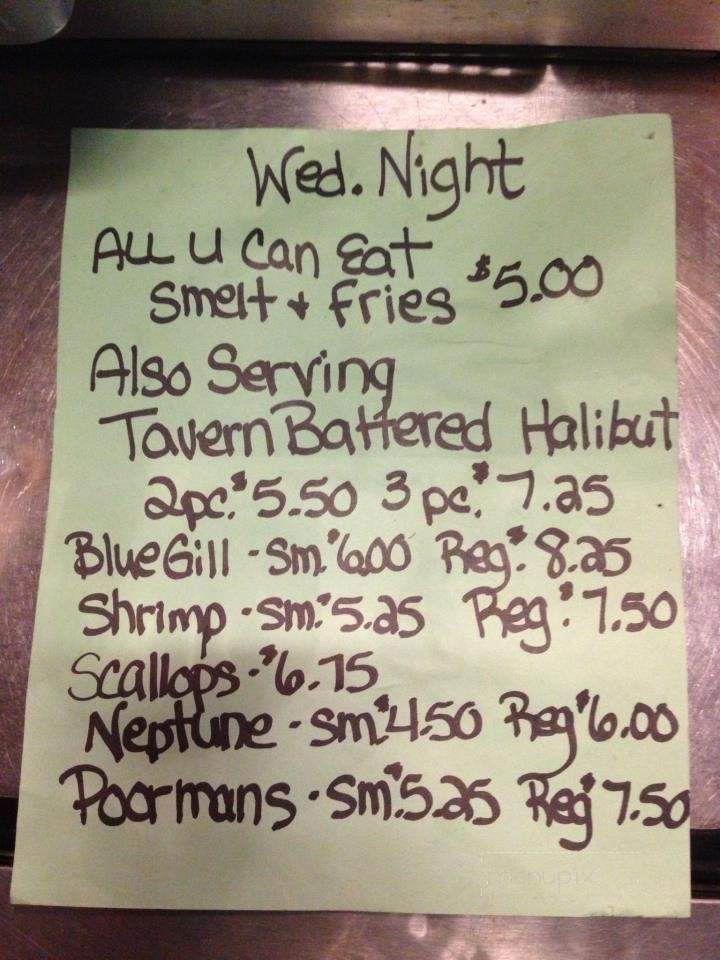 Wed. Night
ALL U Can Eat
Smelt + Fries $5.00
Also Serving
Tavern Battered Halibut
2pc. $5.50 3 pc. $7.25
Blue Gill - Sm. $6.00 Reg. $8.25
Shrimp - Sm. $5.25 Reg. $7.50
Scallops - $6.75
Neptune - Sm. $4.50 Reg $6.00
Poormans - Sm $5.25 Reg $7.50